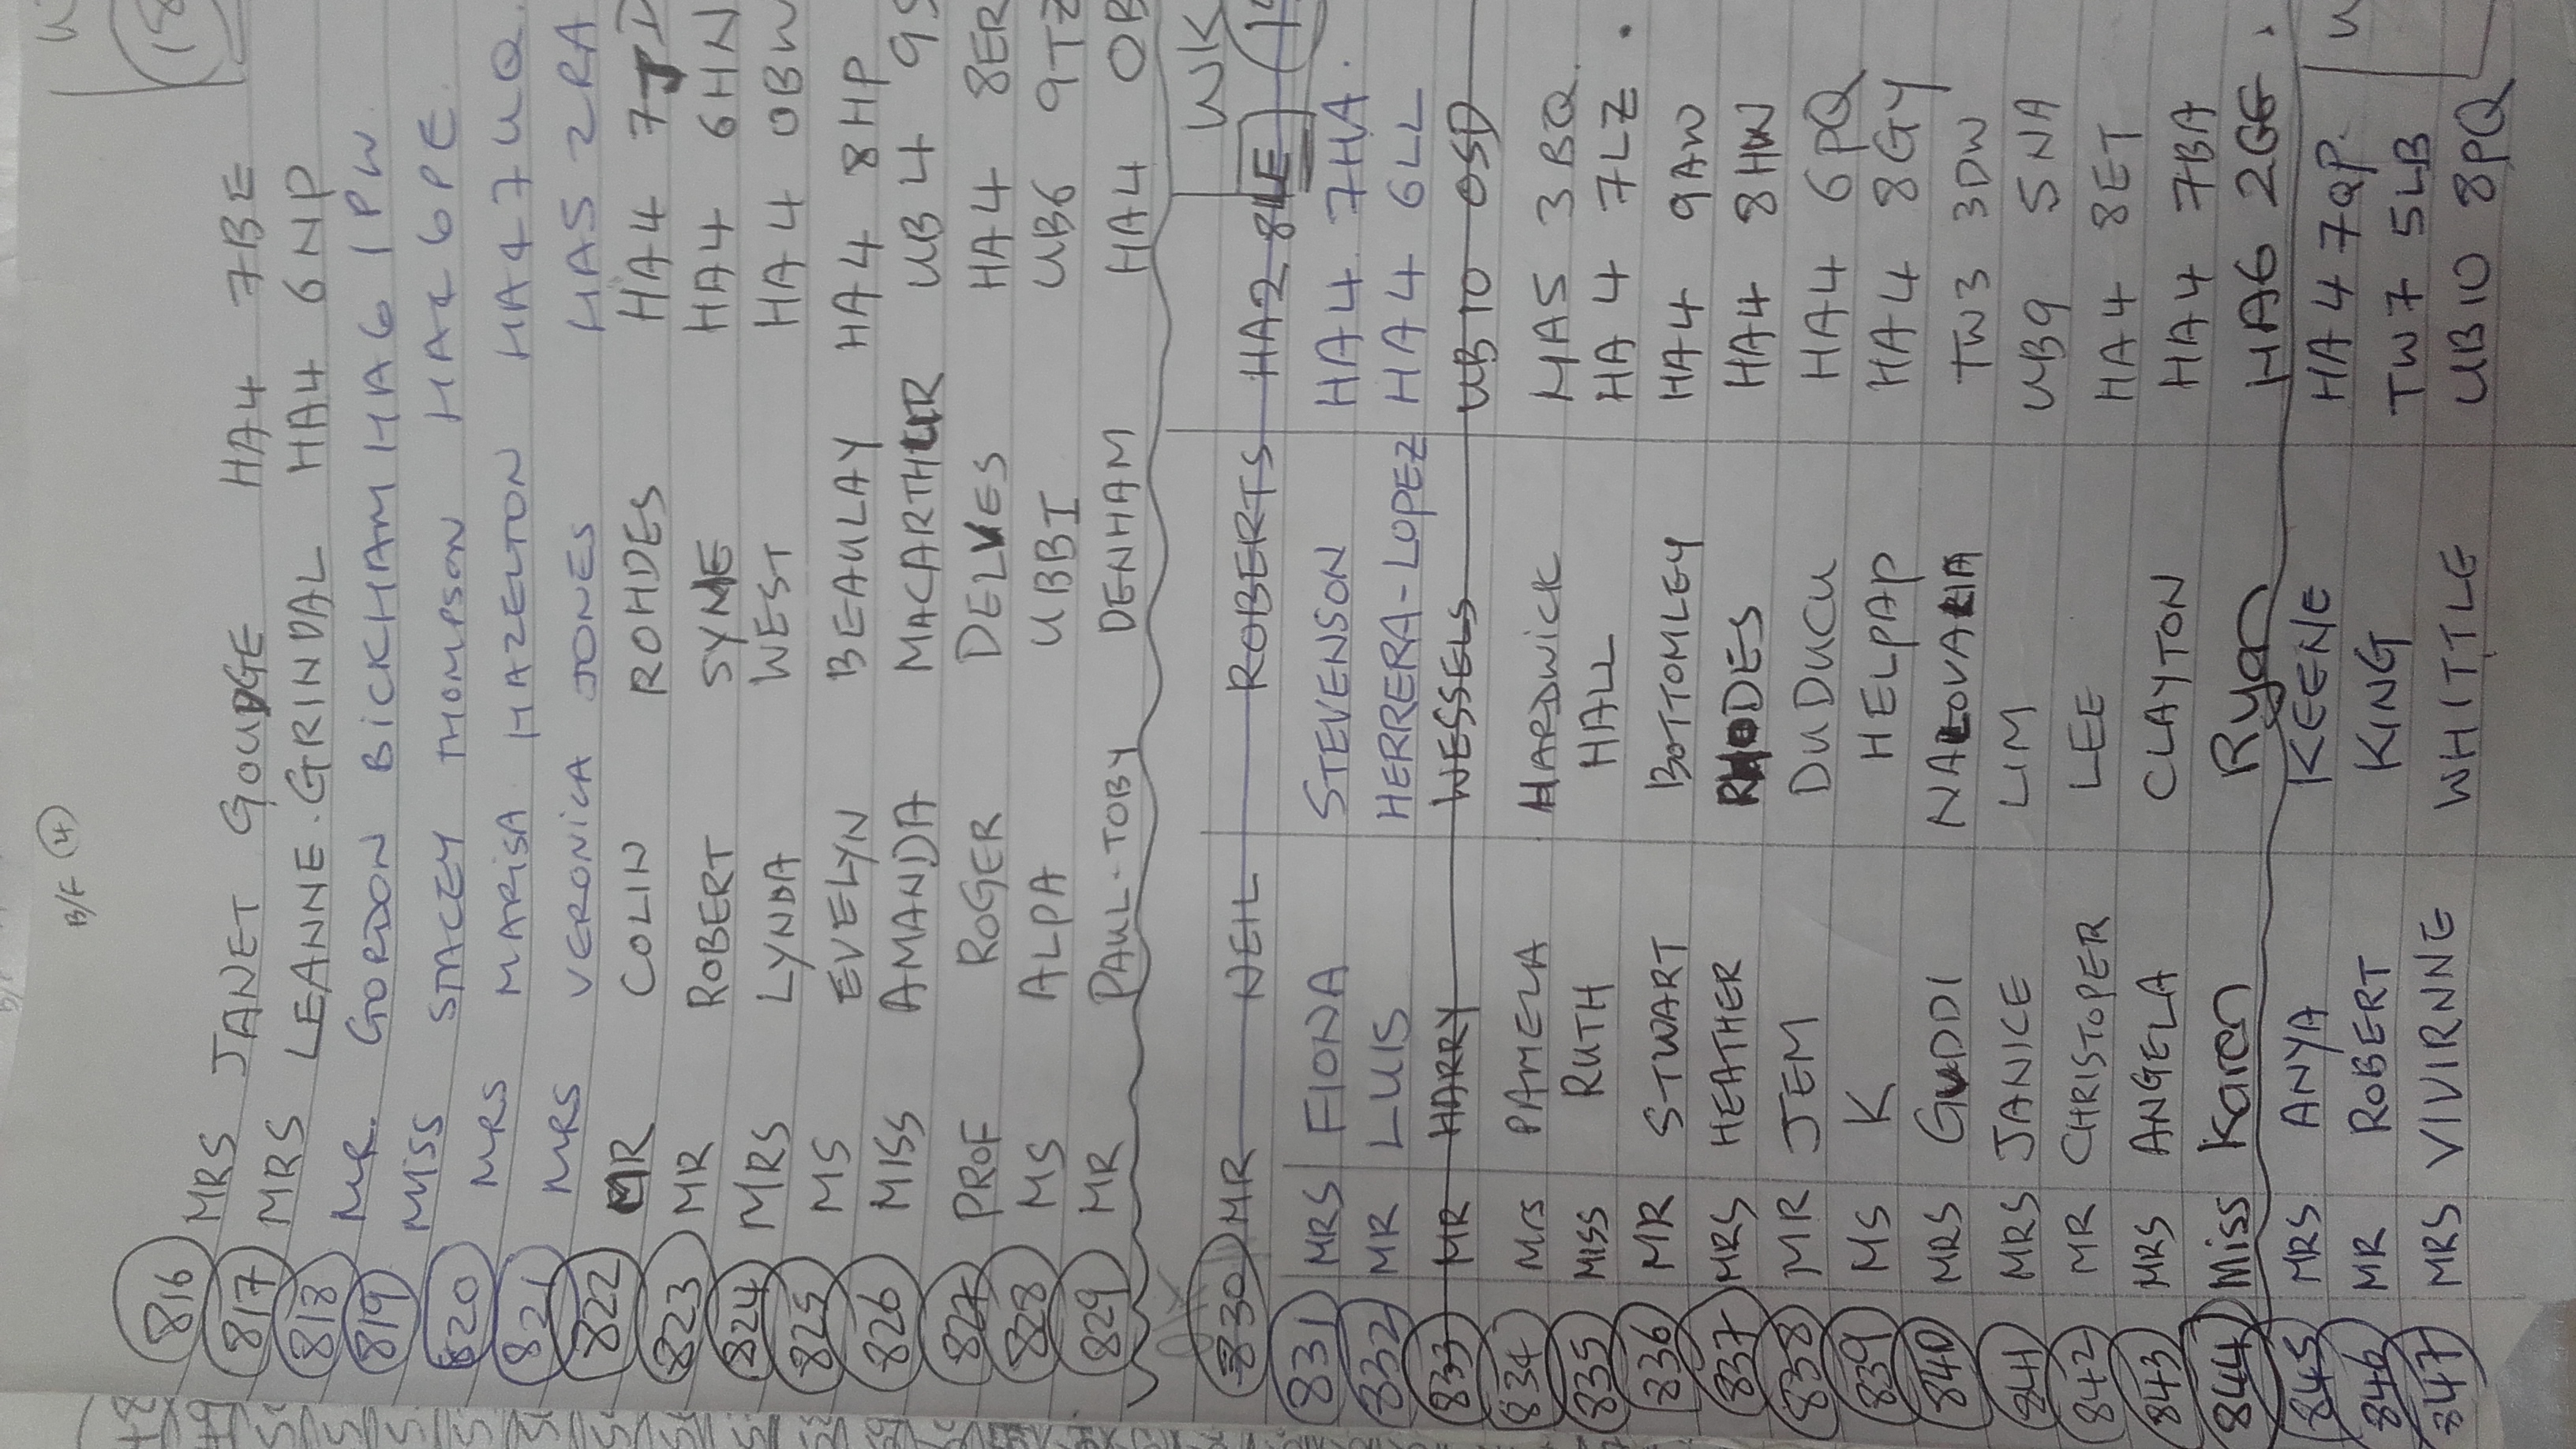 B/F 4
816 MRS JANET GOUDGE HA4 7BE
817 MRS LEANNE GRINDAL HA4 6NP
818 MR. GORDON BICKHAM HA6 1PW
819 MISS STACEY THOMPSON HA4 6PE
820 MRS MARISA HAZELTON HA4 7UQ
821 MRS VERONICA JONES HA5 2RA
822 MR COLIN ROHDES HA4 7JD
823 MR ROBERT SYME HA4 6HN
824 MRS LYNDA WEST HA4 0BW
825 MS EVELYN BEAULAY HA4 8HP
826 MISS AMANDA MACARTHUR UB4 9S
827 PROF ROGER DELVES HA4 8ER
828 MS ALPA UBBI UB6 9TZ
829 MR PAUL-TOBY DENHAM HA4 0B
WK
830 MR NEIL ROBERTS HA2
831 MRS FIONA STEVENSON HA4 7HA
832 MR LUIS HERRERA-LOPEZ HA4 6LL
833 MR HARRY WESSELS UB10 0SD
834 Mrs PAMELA HARDWICK HA5 3BQ.
835 MISS RUTH HALL HA4 7LZ
836 MR STWART BOTTOMLEY HA4 9AW
837 MRS HEATHER RHODES HA4
838 MR JEM DUDUCU HA4 6PQ
839 MS K HELPAP HA4 8GY
840 MRS GUDDI TW3 3DW
841 MRS JANICE LIM UB9 5NA
842 MR CHRISTOPER LEE HA4 8ET
843 MRS ANGELA CLAYTON HA4 7BA
844 Miss Karen Ryan HA6
845 MRS ANYA KEENE HA4 7QP.
846 MR ROBERT KING TW7 5LB
847 MRS VIVIRNNE WHITTLE UB10 8PQ